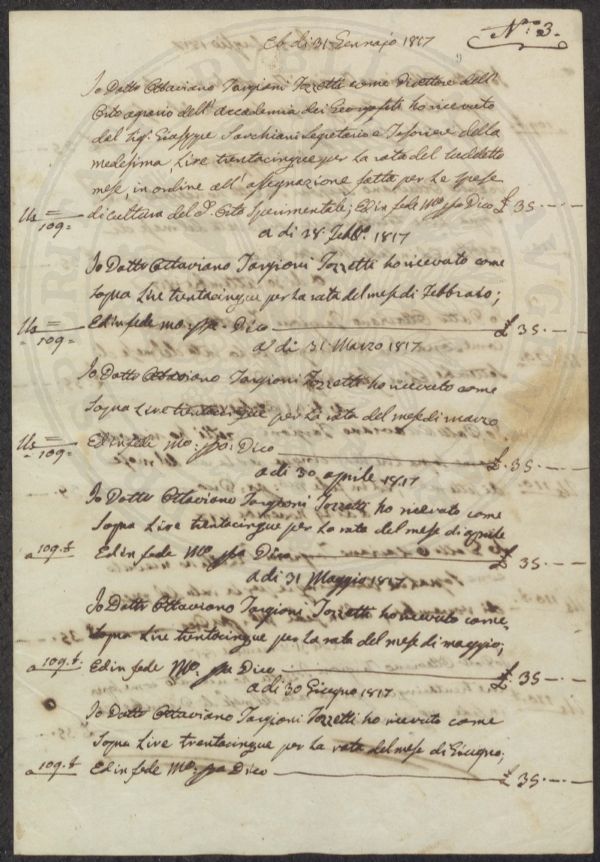 N.ro 3.
A dì 31 Gennajo 1817
Io Dott.e Ottaviano Targioni Tozzetti come Direttore dell'
Orto agrario dell'Accademia dei Georgofili ho ricevuto
dal Sig.r Giuseppe Sarchiani Segretario e Tesoriere della
medesima, Lire trentacinque per la rata del suddetto
mese, in ordine all'assegnazione fatta per le spese
di cultura del d.o Orto Sperimentale; Ed in fede M.o ppa Dico £ 35.—.—
109
a di 28 Febb.o 1817
Io Dotto Ottaviano Targioni Tozzetti ho ricevuto come
sopra Lire trentacinque per la rata del mese di Febbraio;
Ed in fede mo. ppa. Dico £ 35.—.—
109
a di 31 Marzo 1817
Io Dotto Ottaviano Targioni Tozzetti ho ricevuto come
sopra Lire trentacinque per la rata del mese di marzo
Ed in fede, Mo. ppa. Dico £. 35.—.—
109
a di 30 aprile 1817
Io Dotto Ottaviano Targioni Tozzetti ho ricevuto come
sopra Lire trentacinque per la rata del mese di aprile
a 109.t Ed in fede M.o ppa Dico £ 35.—.—
a di 31 Maggio 1817
Io Dotto Ottaviano Targioni Tozzetti ho ricevuto come
sopra Lire trentacinque per la rata del mese di maggio;
a 109.t. Ed in fede M.o ppa Dico £ 35.—.—
a di 30 Giugno 1817
Io Dotto Ottaviano Targioni Tozzetti ho ricevuto come
sopra Lire trentacinque per la rata del mese di Giugno;
a 109.t Ed in fede M.o ppa Dico £ 35.—.—